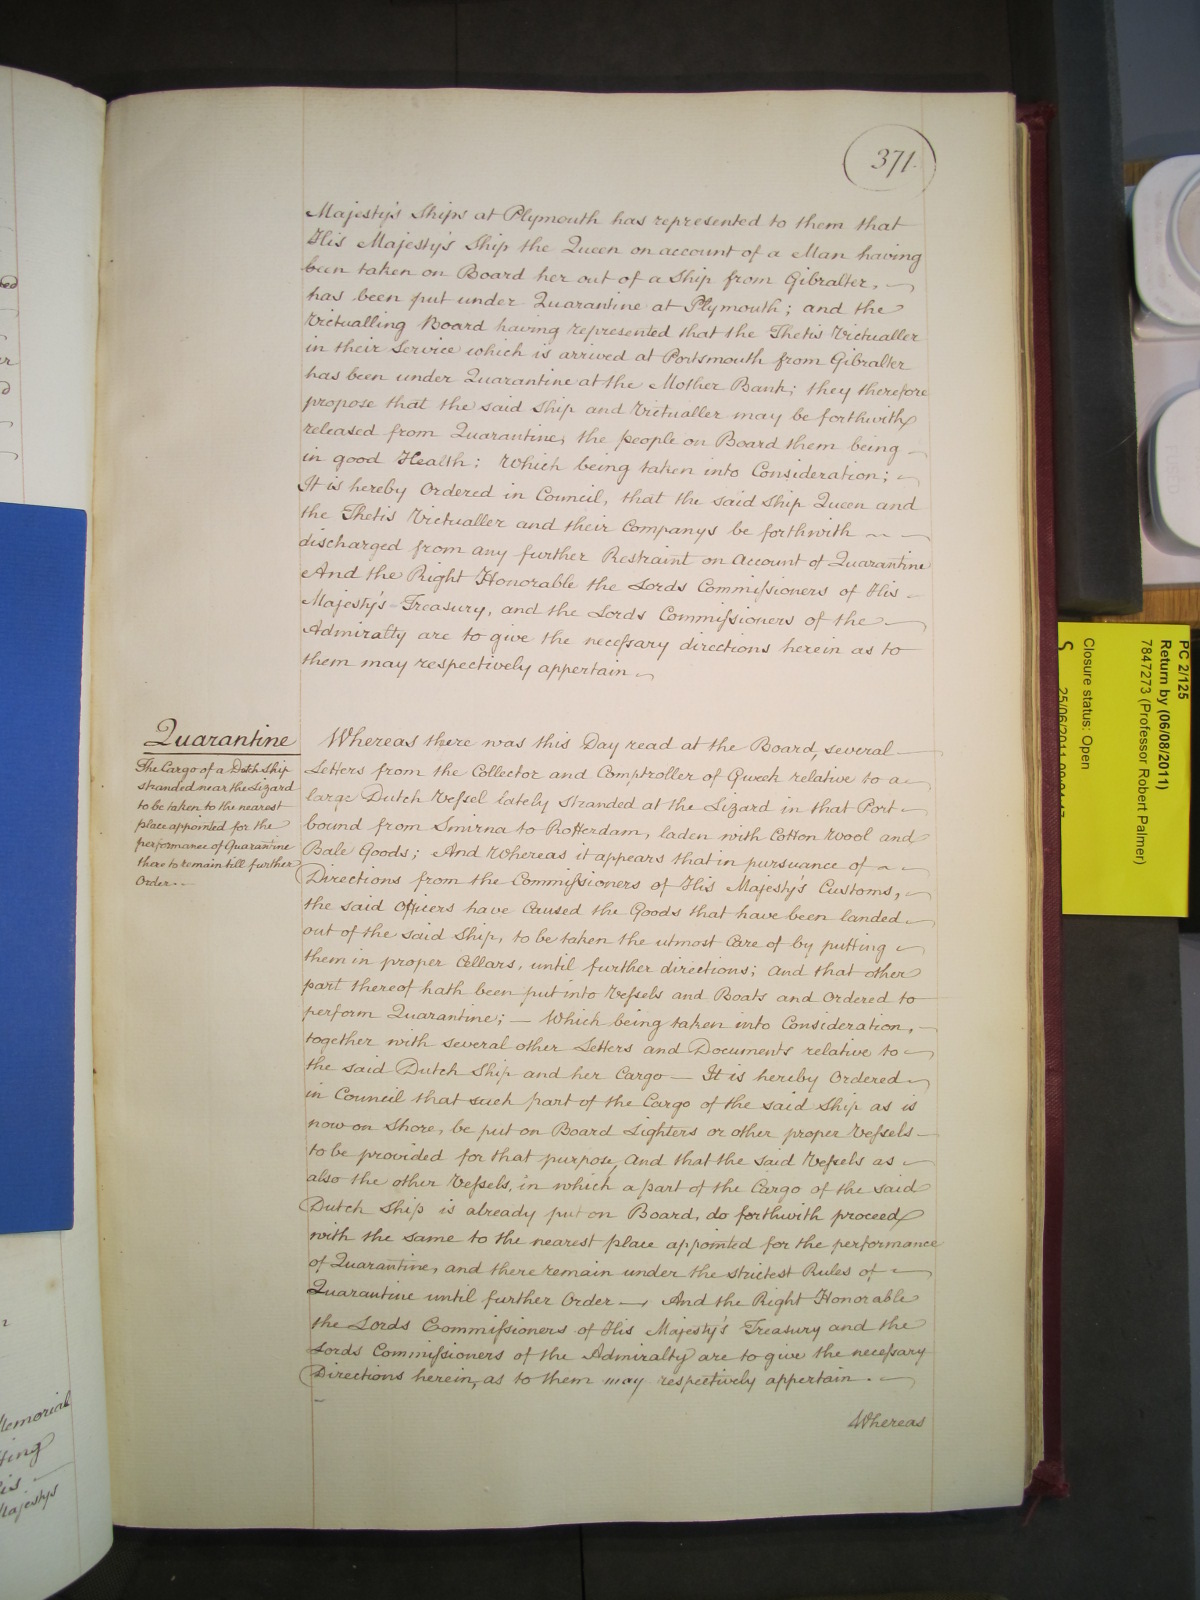 371.
Majesty's Ships at Plymouth has represented to them that
His Majesty's Ship the Queen on account of a Man having
been taken on Board her out of a Ship from Gibralter,
has been put under Quarantine at Plymouth; and the
Victualling Board having represented that the Thetis Victualler
in their Service which is arrived at Portsmouth from Gibralter
has been under Quarantine at the Mother Bank; they therefore
propose that the said Ship and Victualler may be forthwith
released from Quarantine, the people on Board them being
in good Health: Which being taken into Consideration;
It is hereby Ordered in Council, that the said Ship Queen and
the Thetis Victualler and their Companys be forthwith
discharged from any further Restraint on Account of Quarantine
And the Right Honorable the Lords Commissioners of His
Majesty's Treasury, and the Lords Commissioners of the
Admiralty are to give the necessary directions herein as to
them may respectively appertain
Quarantine
The Cargo of a Dutch Ship
stranded near the Lizard
to be taken to the nearest
place appointed for the
performance of Quarantine
there to remain till further
Order.
Whereas there was this Day read at the Board, several
Letters from the Collector and Comptroller of Gweek relative to a
large Dutch Vessel lately stranded at the Lizard in that Port
bound from Smirna to Rotterdam, laden with Cotton Wool and
Bale Goods; And Whereas it appears that in pursuance of
Directions from the Commissioners of His Majesty's Customs,
the said Officers have Caused the Goods that have been landed
out of the said Ship, to be taken the utmost Care of by putting
them in proper Cellars, until further directions; and that other
part thereof hath been put into Vessels and Boats and Ordered to
perform Quarantine; — Which being taken into Consideration,
together with several other Letters and Documents relative to
the said Dutch Ship and her Cargo — It is hereby Ordered
in Council that such part of the Cargo of the said Ship as is
now on Shore, be put on Board Lighters or other proper Vessels
to be provided for that purpose, and that the said Vessels as
also the other Vessels, in which a part of the Cargo of the said
Dutch Ship is already put on Board, do forthwith proceed
with the same to the nearest place appointed for the performance
of Quarantine, and there remain under the strictest Rules of
Quarantine until further Order — And the Right Honorable
the Lords Commissioners of His Majesty's Treasury and the
Lords Commissioners of the Admiralty are to give the necessary
Directions herein, as to them may respectively appertain.
Whereas
Memorial
Majestys
PC 2/125
Return by (06/08/2011)
7847273 (Professor Robert Palmer)
Closure status: Open
S